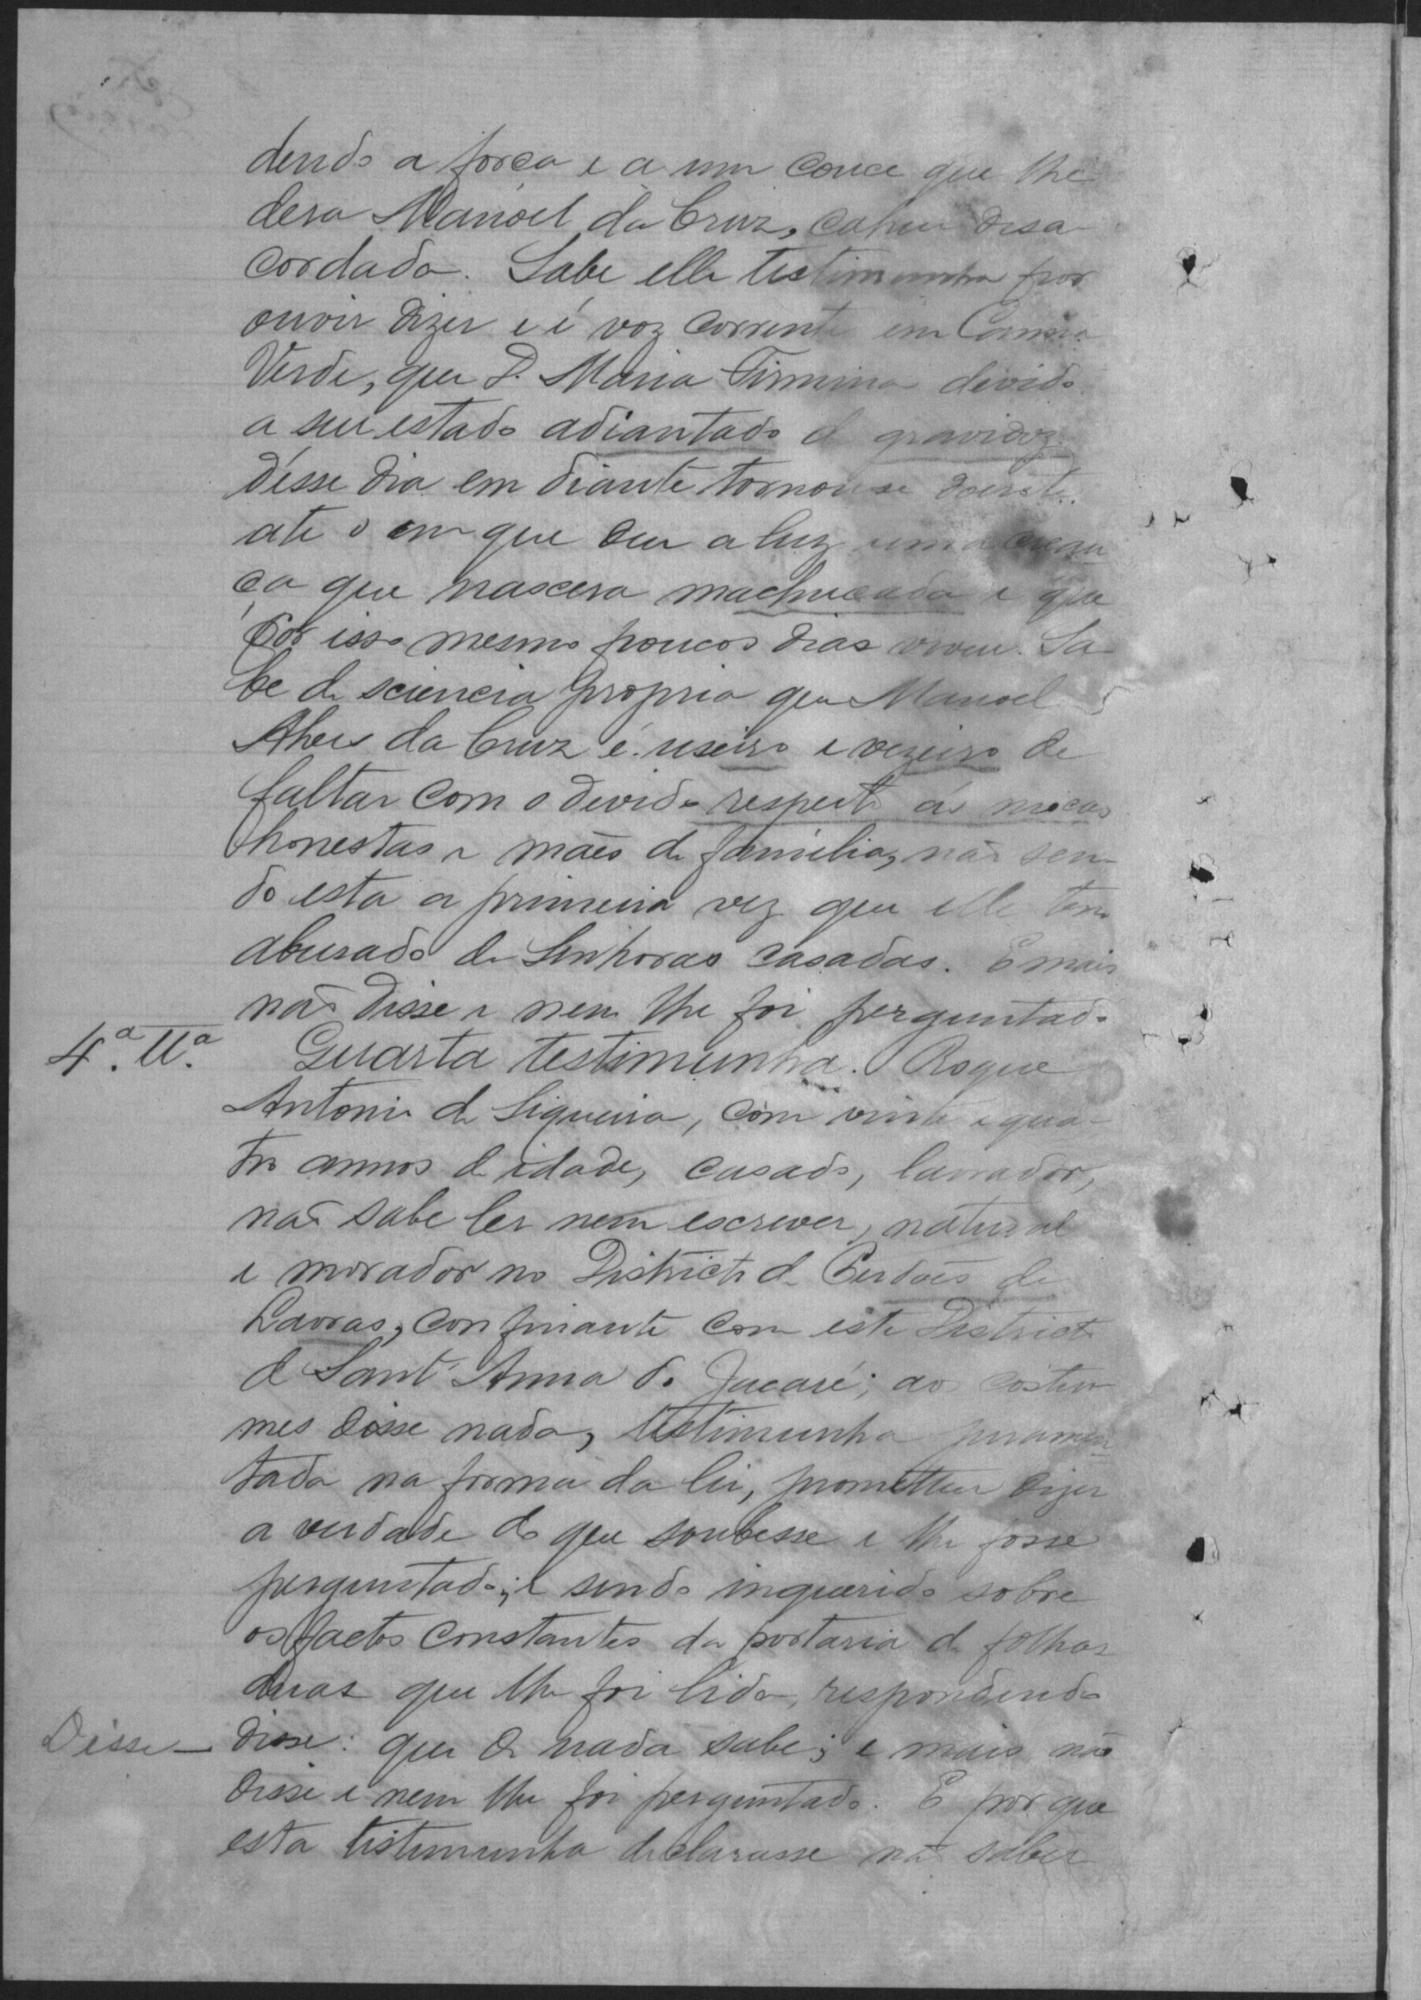 dendo a força e a um couce que lhe
dera Manoel da Cruz, cahiu desa-
cordada. Sabe elle testimunha por
ouvir dizer e é voz corrente em Canna
Verde, que D. Maria Firmina devido
a seu estado adiantado de gravidez
désse dia em diante tornou se doente
ate o em que deu a luz uma crean
ça que nascera machucada e que
por isso mesmo poucos dias viveu. Sa-
be de sciencia propria que Manoel
Alves da Cruz é useiro e vezeiro de
faltar com o devido respeito ás moças
honestas e mães de familia, não sen-
do esta a primeira vez que elle tem
abusado de Senhoras casadas. E mais
não disse e nem lhe foi perguntado
4.ª Tt.ª Quarta testimunha. Roque
Antonio de Siqueira, com vinte e qua-
tro annos de idade, casado, lavrador,
não sabe ler nem escrever, natural
e morador no Districto de Perdões de
Lavras, confinante com este Districto
de Sant'Anna do Jacaré; aos costu
mes disse nada, testimunha juramen
tada na forma da lei, prometteu dizer
a verdade do que soubesse e lhe fosse
perguntado; e sendo inquerido sobre
os factos constantes da portaria de folhas
duas que lhe foi lida, respondendo
Disse — disse: que de nada sabe; e mais não
disse e nem lhe foi perguntado. E por que
esta testimunha declarasse não saber